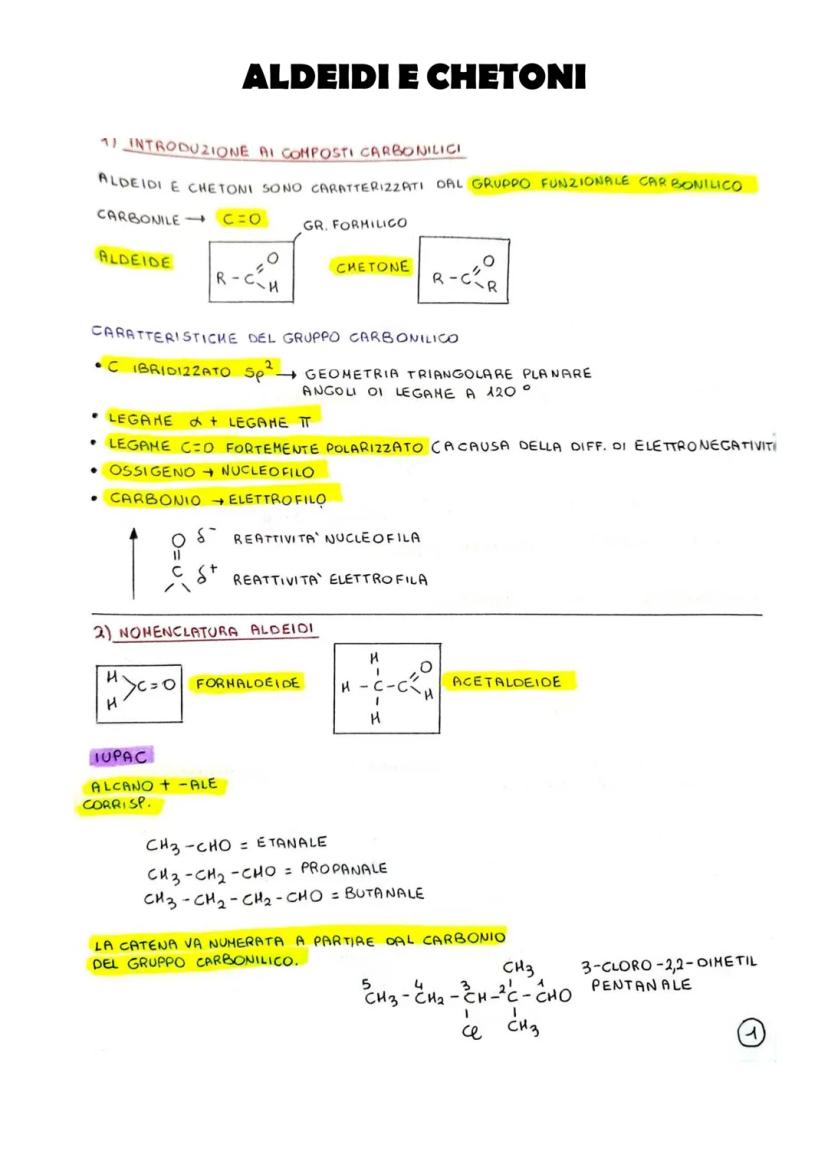 ALDEIDI E CHETONI
1) INTRODUZIONE AI COMPOSTI CARBONILICI
ALDEIDI E CHETONI SONO CARATTERIZZATI DAL GRUPPO FUNZIONALE CARBONILICO
CARBONILE → C=O
GR. FORMILICO
ALDEIDE
R-C
O
H
CHETONE
R-C
O
R
CARATTERISTICHE DEL GRUPPO CARBONILICO
• C IBRIDIZZATO Sp² → GEOMETRIA TRIANGOLARE PLANARE
ANGOLI DI LEGAME A 120°
• LEGAME α + LEGAME π
• LEGAME C=O FORTEMENTE POLARIZZATO (A CAUSA DELLA DIFF. DI ELETTRONEGATIVIT
• OSSIGENO → NUCLEOFILO
• CARBONIO → ELETTROFILO
O δ⁻ REATTIVITA' NUCLEOFILA
C δ⁺ REATTIVITA' ELETTROFILA
2) NOMENCLATURA ALDEIDI
H
H
C=O
FORMALDEIDE
H
H-C-C
O
H
H
ACETALDEIDE
IUPAC
ALCANO + -ALE
CORRISP.
CH3-CHO = ETANALE
CH3-CH2-CHO = PROPANALE
CH3-CH2-CH2-CHO = BUTANALE
LA CATENA VA NUMERATA A PARTIRE DAL CARBONIO
DEL GRUPPO CARBONILICO.
CH3
5 4 3 2 1
CH3-CH2-CH-C-CHO
Cl CH3
3-CLORO-2,2-DIMETIL
PENTANALE
1